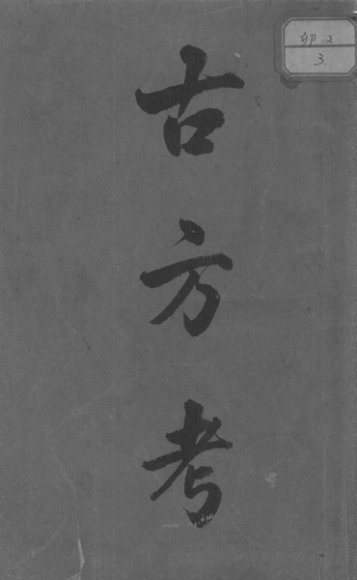 古方考
卯2
3